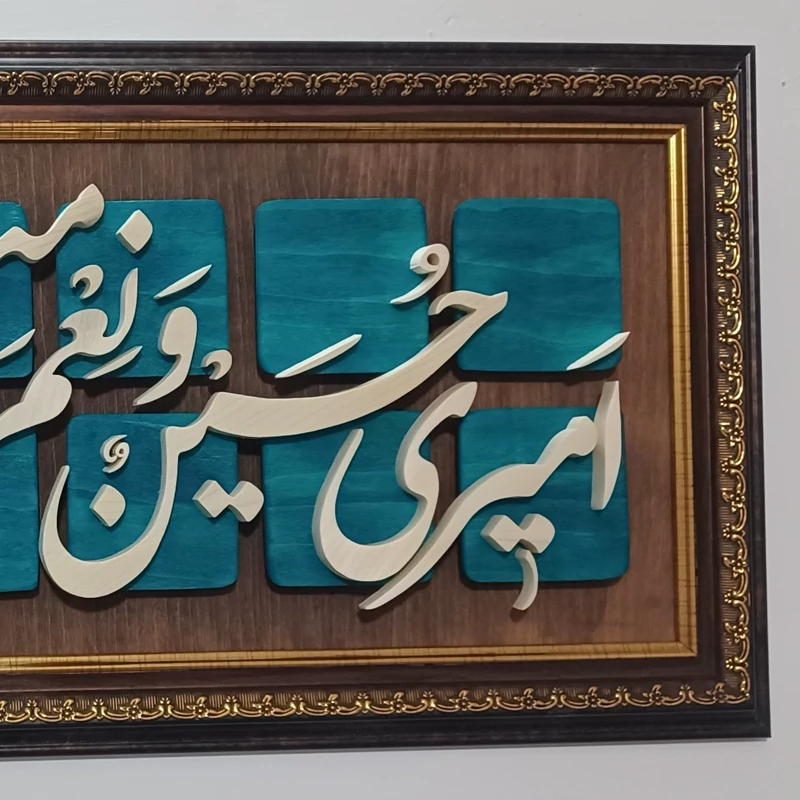 اَمیری حُسَیْنٌ وَ نِعْمَ